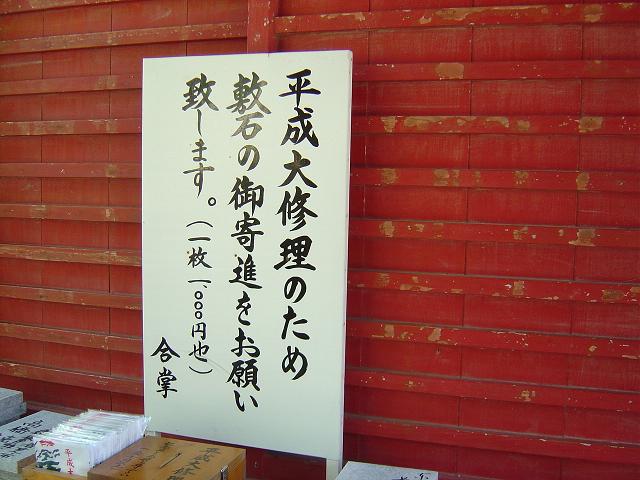 平成大修理のため
敷石の御寄進をお願い
致します。（一枚一、〇〇〇円也）
合掌
平成大
平成大修